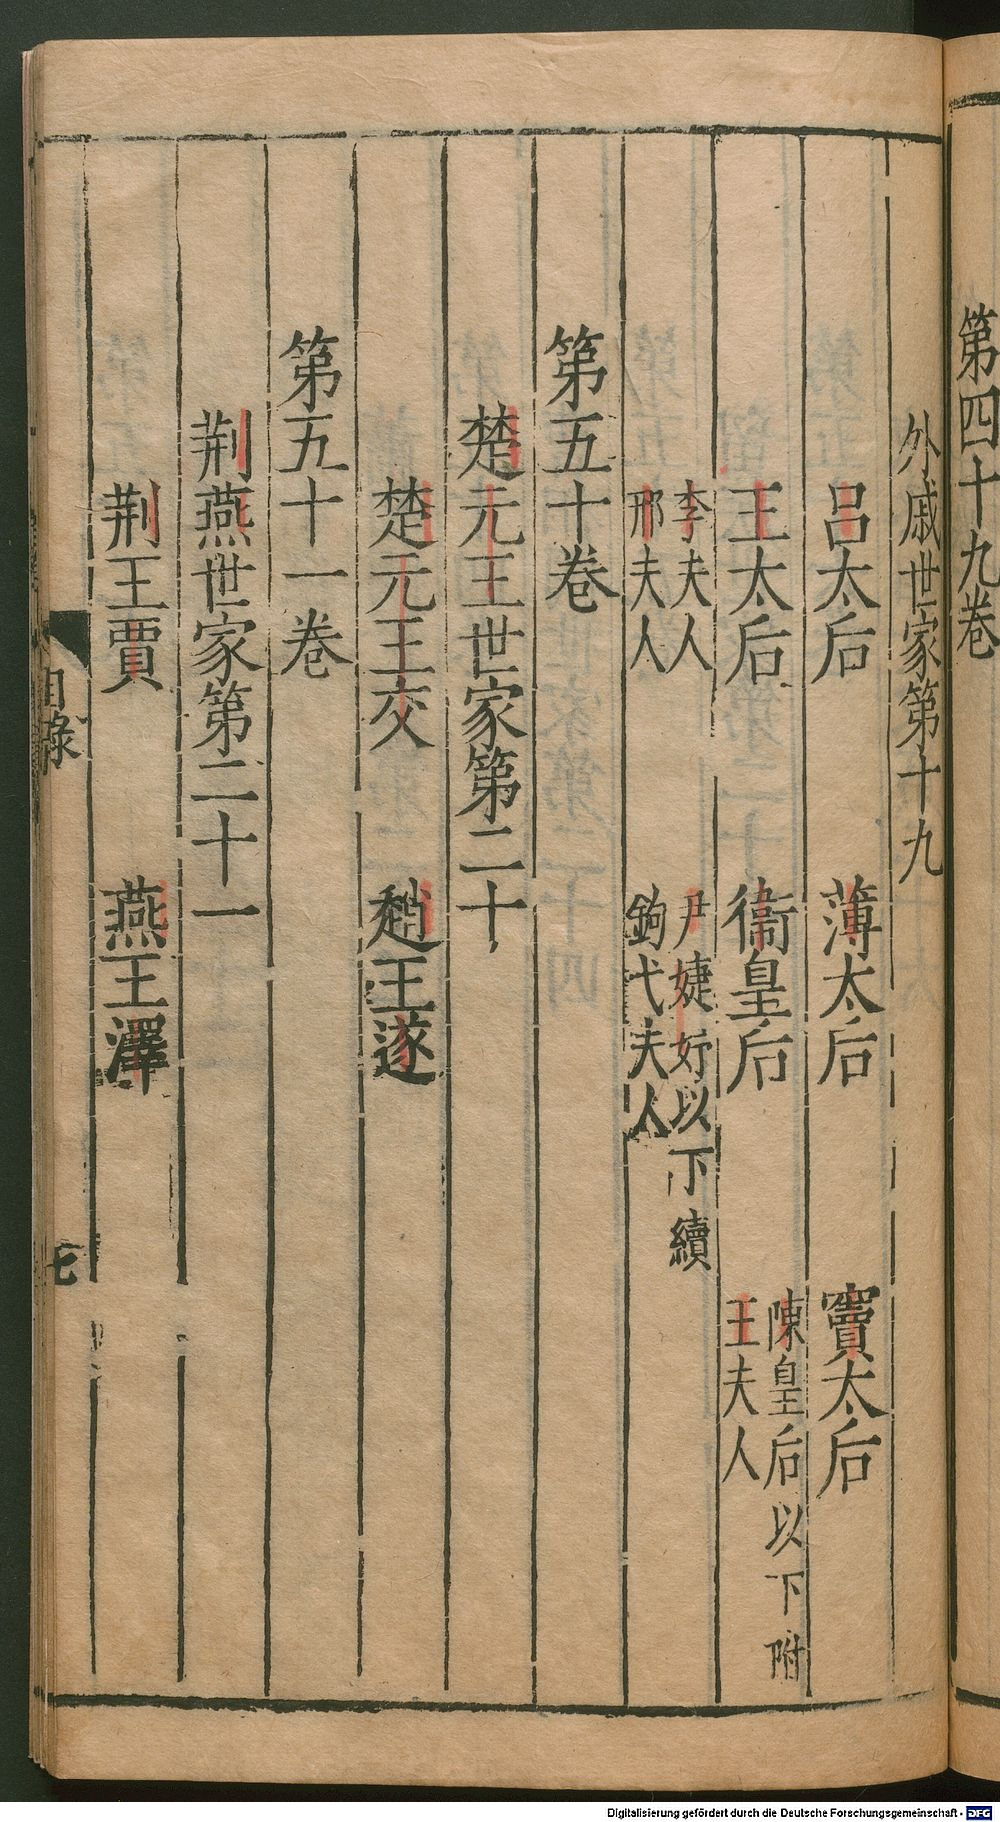 第四十九卷
外戚世家第十九
呂太后 薄太后 竇太后
王太后 衞皇后 陳皇后以下附 王夫人
李夫人 尹婕妤以下續
邢夫人 鉤弋夫人
第五十卷
楚元王世家第二十
楚元王交 趙王遂
第五十一卷
荆燕世家第二十一
荆王賈 燕王澤
目錄
七
Digitalisierung gefördert durch die Deutsche Forschungsgemeinschaft - DFG